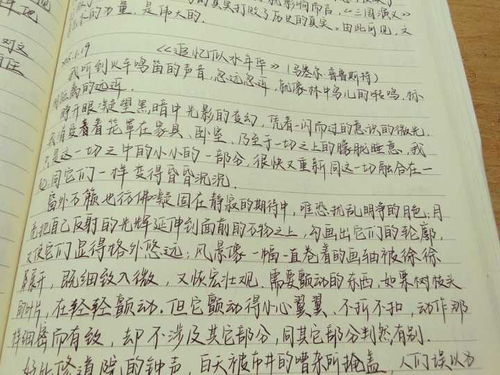 文的力量,是伟大的.
《追忆似水年华》(马塞尔·普鲁斯特)
我听到火车鸣笛的声音,忽远忽近,就像林中鸟儿的啭鸣,标
距离的远近.
睁开眼凝望黑暗中光影的变幻,凭着一闪而过的意识的微光,
我消受着笼罩在家具、卧室、乃至于一切之上的朦胧睡意,我
只是这一切之中的小小的一部分,很快又重新同这一切融合在一
起,同它们一样变得昏昏沉沉.
窗外万籁也彷彿凝固在静寂的期待中,唯恐扰乱明净的月色;月
亮把自己反射的光辉延伸到面前的万物之上,勾画出它们的轮廓,
又使它们显得格外悠远;风景像一幅一直卷着的画轴被徐徐
展开,既细致入微,又恢宏壮观.需要颤动的东西,如果树枝头
的叶片,在轻轻颤动.但它颤动得小心翼翼、不折不扣,动作那
样细密而有致,却不涉及其它部分,同其它部分判然有别.
好比修道院的钟声,白天被市井的嘈杂所掩盖,人们误以为